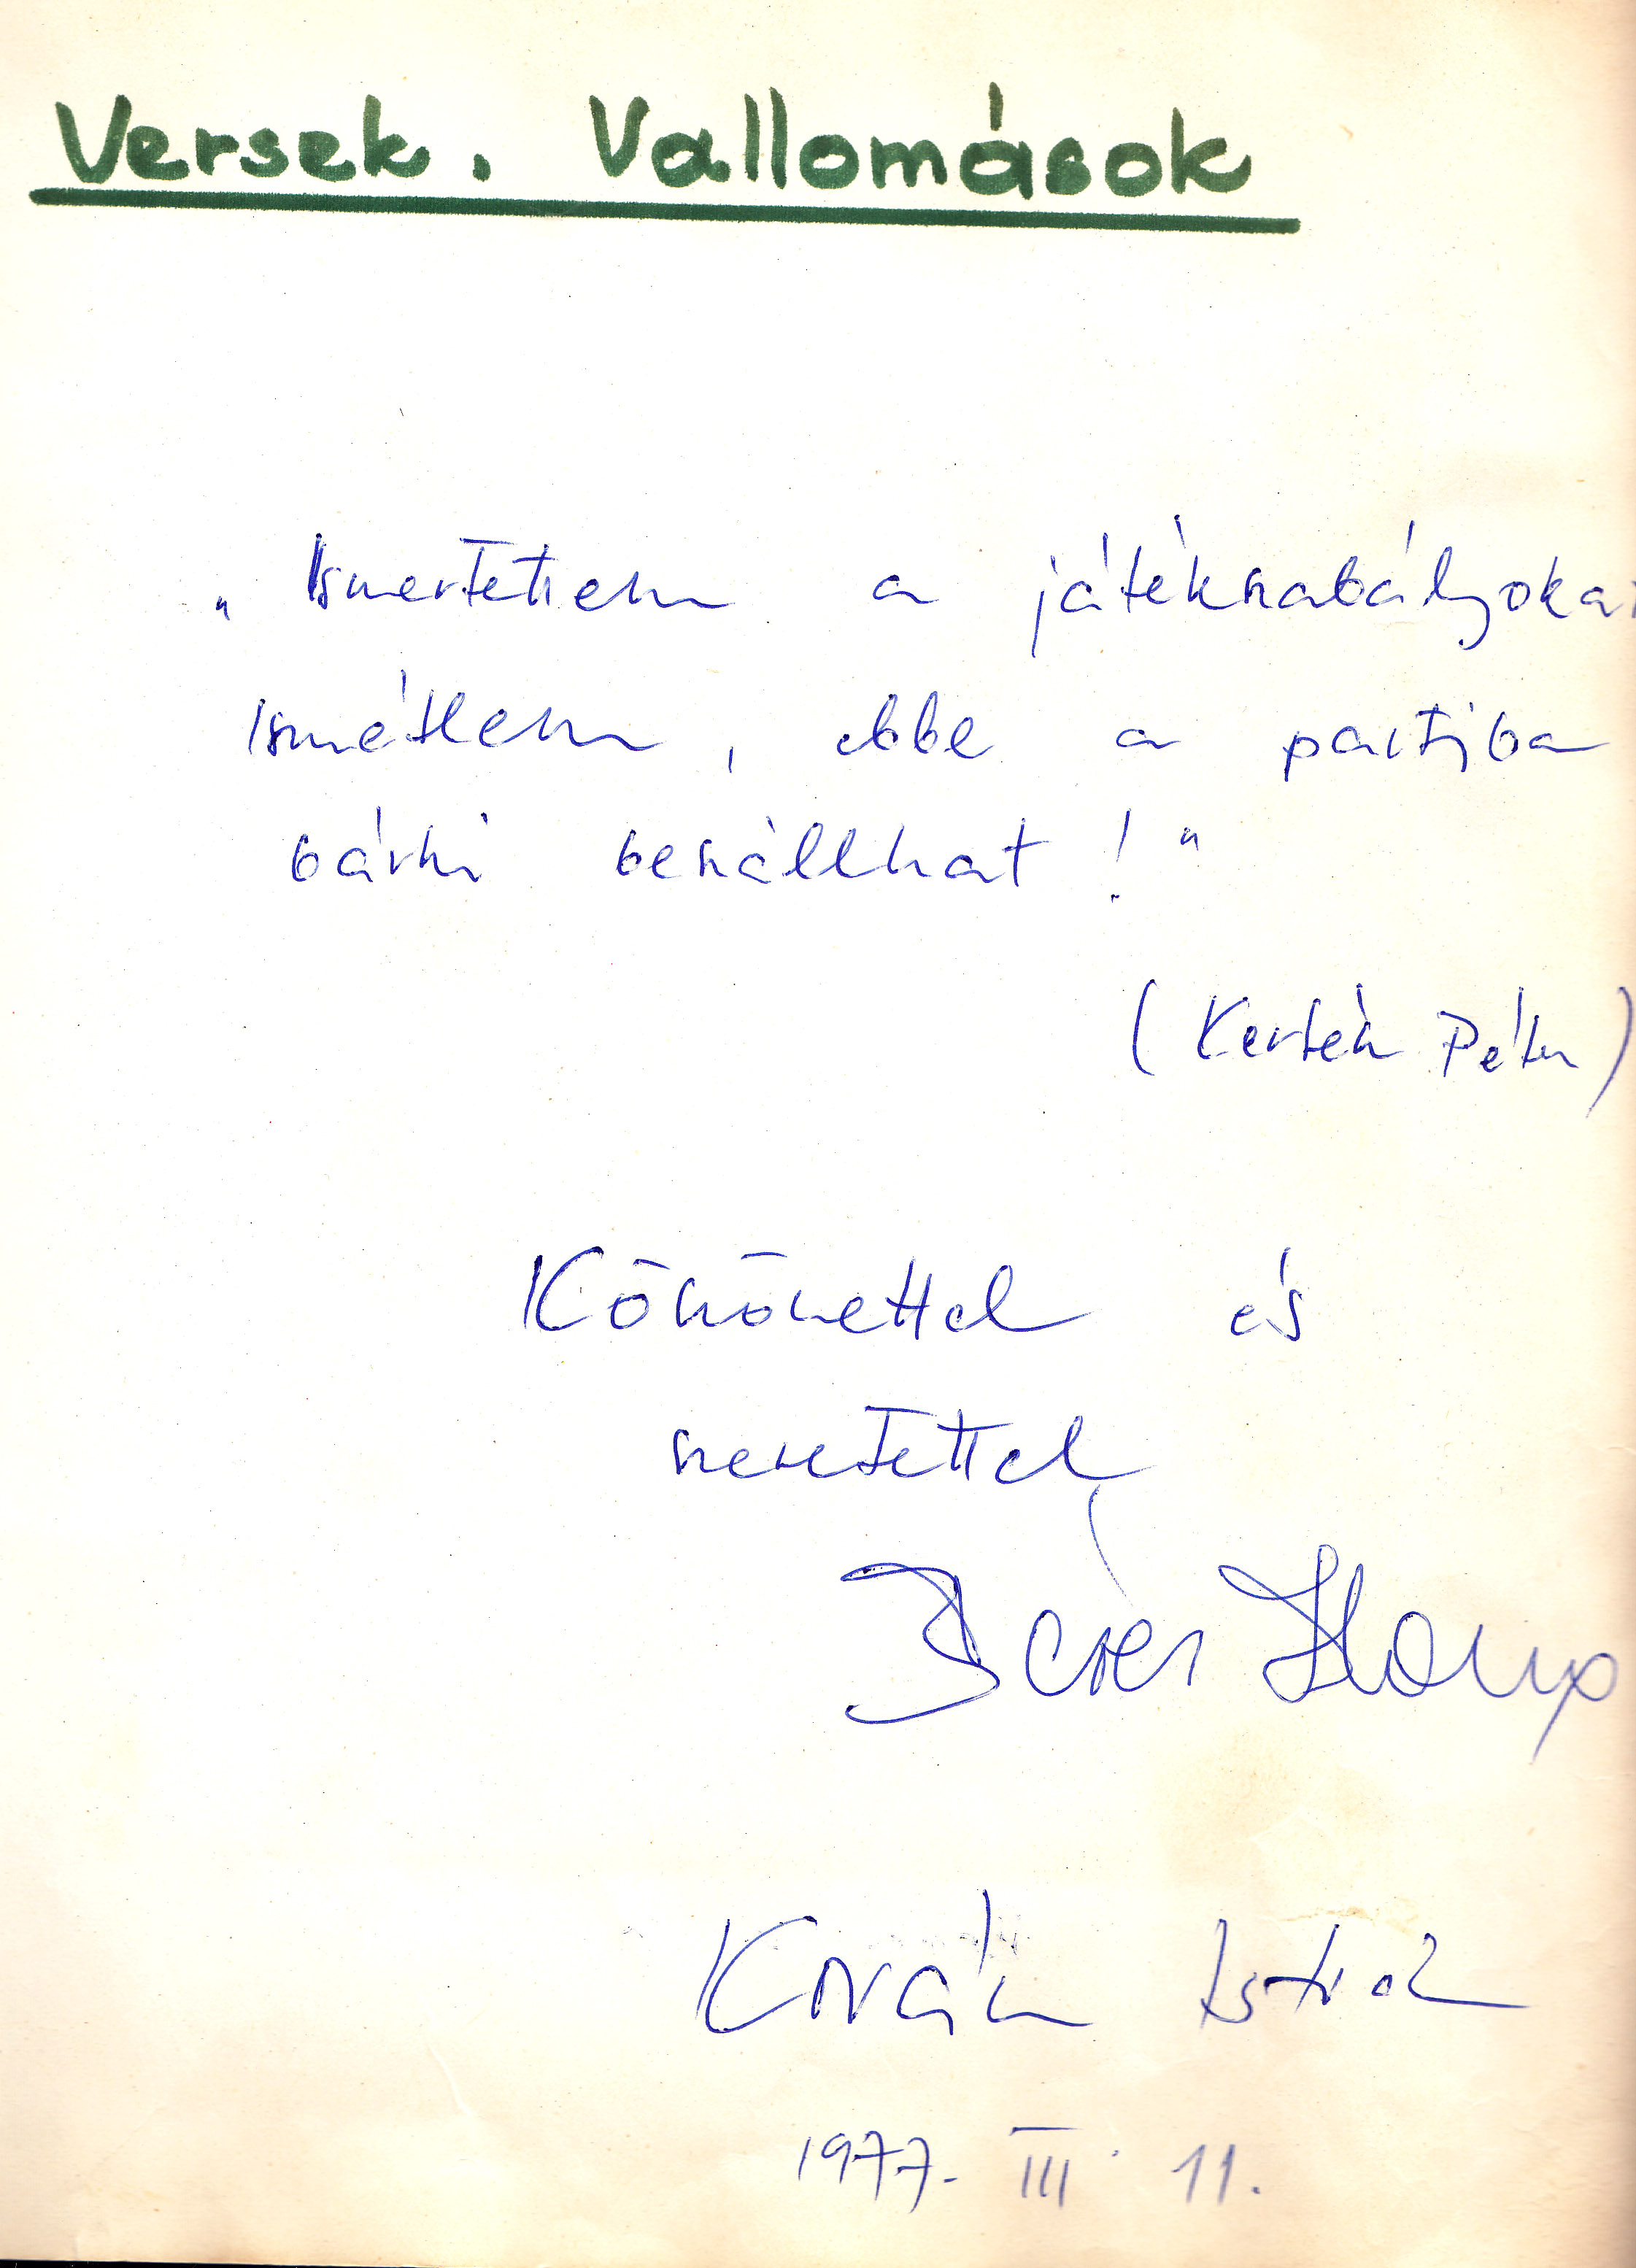 Versek. Vallomások
„Ismertettem a játékszabályokat
Ismétlem, ebbe a partiba
bárki beszállhat!"
(Kertész Péter)
Köszönettel és
szeretettel
Kovács István
1977. III. 11.